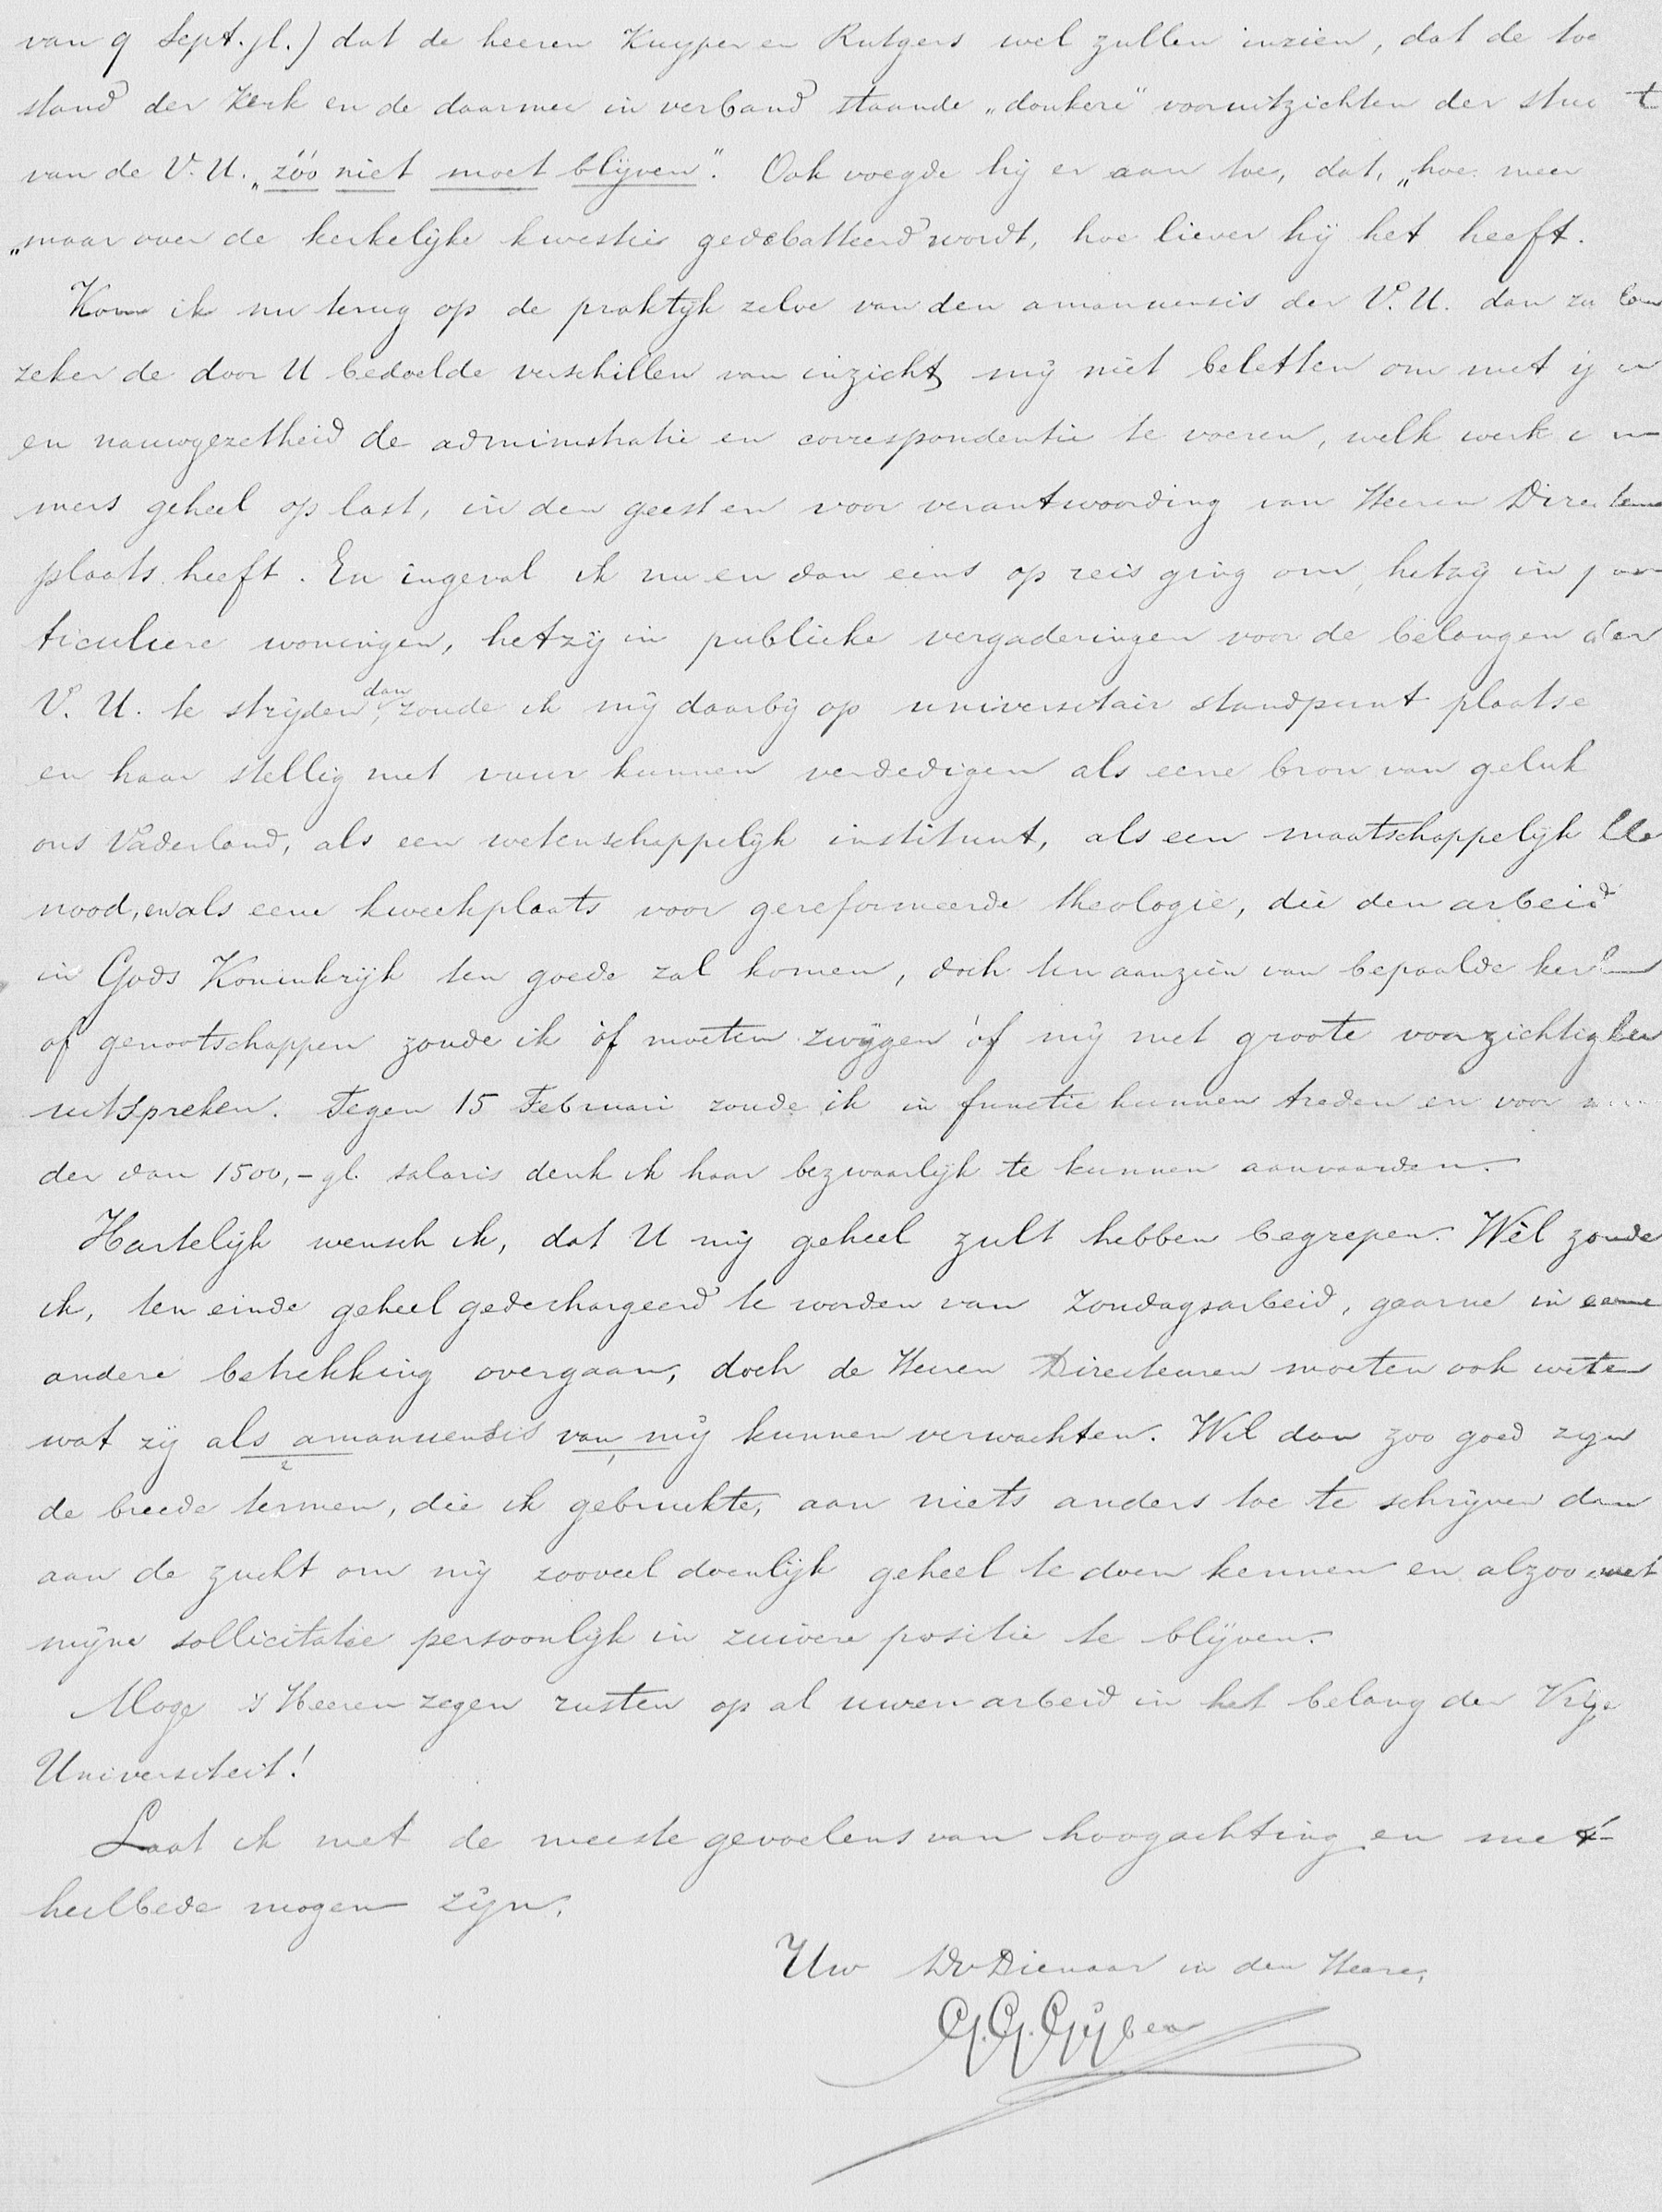 van 9 Sept. jl.) dat de heeren Kuyper en Rutgers wel zullen inzien, dat de toe
stand der Kerk en de daarmee in verband staande „donkere" vooruitzichten der
van de V. U. „zóó niet moet blijven". Ook voegde hij er aan toe, dat, „hoe meer
„maar over de kerkelijke kwestie gedebatteerd wordt, hoe liever hij het heeft.
Kom ik nu terug op de praktijk zelve van den amanuensis der V. U. dan
zeker de door U bedoelde verschillen van inzicht mij niet beletten om met
en nauwgezetheid de administratie en correspondentie te voeren, welk werk
mers geheel op last, in den geest en voor verantwoording van Heeren
plaats heeft. En ingeval ik nu en dan eens op reis ging om, hetzij in par
ticuliere woningen, hetzij in publieke vergaderingen voor de belangen der
V. U. te strijden, dan zoude ik mij daarbij op universitair standpunt plaatse
en haar stellig met vuur kunnen verdedigen als eene bron van geluk
ons Vaderland, als een wetenschappelijk instituut, als een maatschappelijk kle
nood, en als eene kweekplaats voor gereformeerde theologie, die den arbeid
in Gods Koninkrijk ten goede zal komen, doch ten aanzien van bepaalde
of genootschappen zoude ik òf moeten zwijgen òf mij met groote
uitspreken. Tegen 15 Februari zoude ik in functie kunnen treden en voor
der dan 1500,- gl. salaris denk ik haar bezwaarlijk te kunnen aanvaarden.
Hartelijk wensch ik, dat U mij geheel zult hebben begrepen. Wèl zoude
ik, ten einde geheel gedechargeerd te worden van Zondagsarbeid, gaarne in eene
andere betrekking overgaan, doch de Heeren Directeuren moeten ook weten
wat zij als amanuensis van mij kunnen verwachten. Wil dan zoo goed zijn
2 1
de breede termen, die ik gebruikte, aan niets anders toe te schrijven dan
aan de zucht om mij zooveel doenlijk geheel te doen kennen en alzoo met
mijne sollicitatie persoonlijk in zuivere positie te blijven.
Moge 's Heeren zegen rusten op al uwen arbeid in het belang der Vrije
Universiteit!
Laat ik met de meeste gevoelens van hoogachting en met
heilbede mogen zijn,
Uw Dv Dienaar in den Heere,
G. G. Gijben